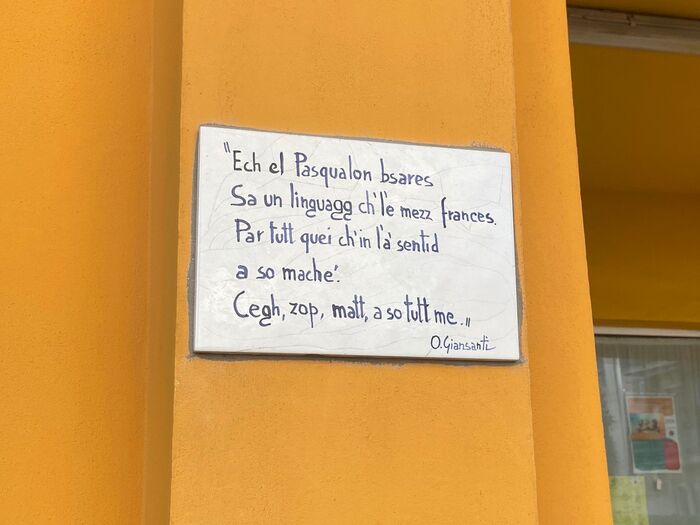 "Ech el Pasqualon bsares
Sa un linguagg ch'l'è mezz frances.
Par tutt quei ch'in l'à sentid
a so mache'.
Cegh, zop, matt, a so tutt me.."
O. Giansanti